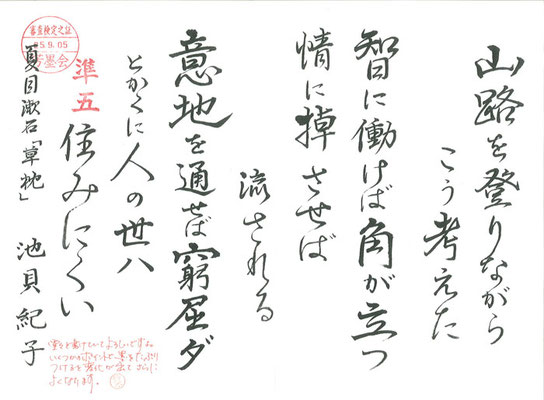 山路を登りながら
こう考えた
智に働けば角が立つ
情に掉させば
流される
意地を通せば窮屈ダ
とかくに人の世ハ
住みにくい
準五
夏目漱石「草枕」 池貝紀子
審査検定之証
25.9.05
書墨会